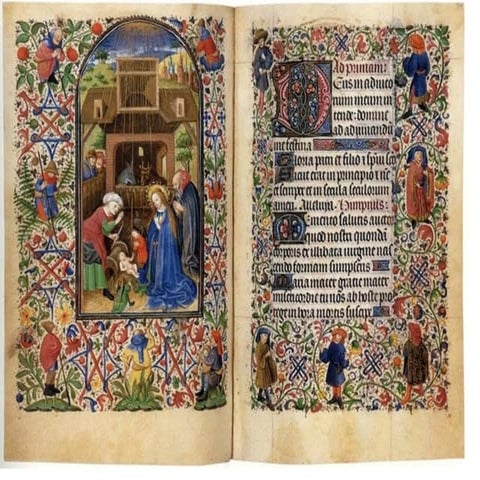 Ad primam:
Deus in adiuto
rium meum in
tende: domine
ad adiuuandu
me festina
Gloria patri et filio z spui sco
Sicut erat in principio z nc
et semper et in secula seculorum
amen. Alleluya. Himpnus:
Memento salutis auctor
quod nostri quondam
corporis ex illibata uirgine nas
cendo formam sumpseris
Maria mater gratie mater
misericordie tu nos ab hoste pro
tege in hora mortis suscipe